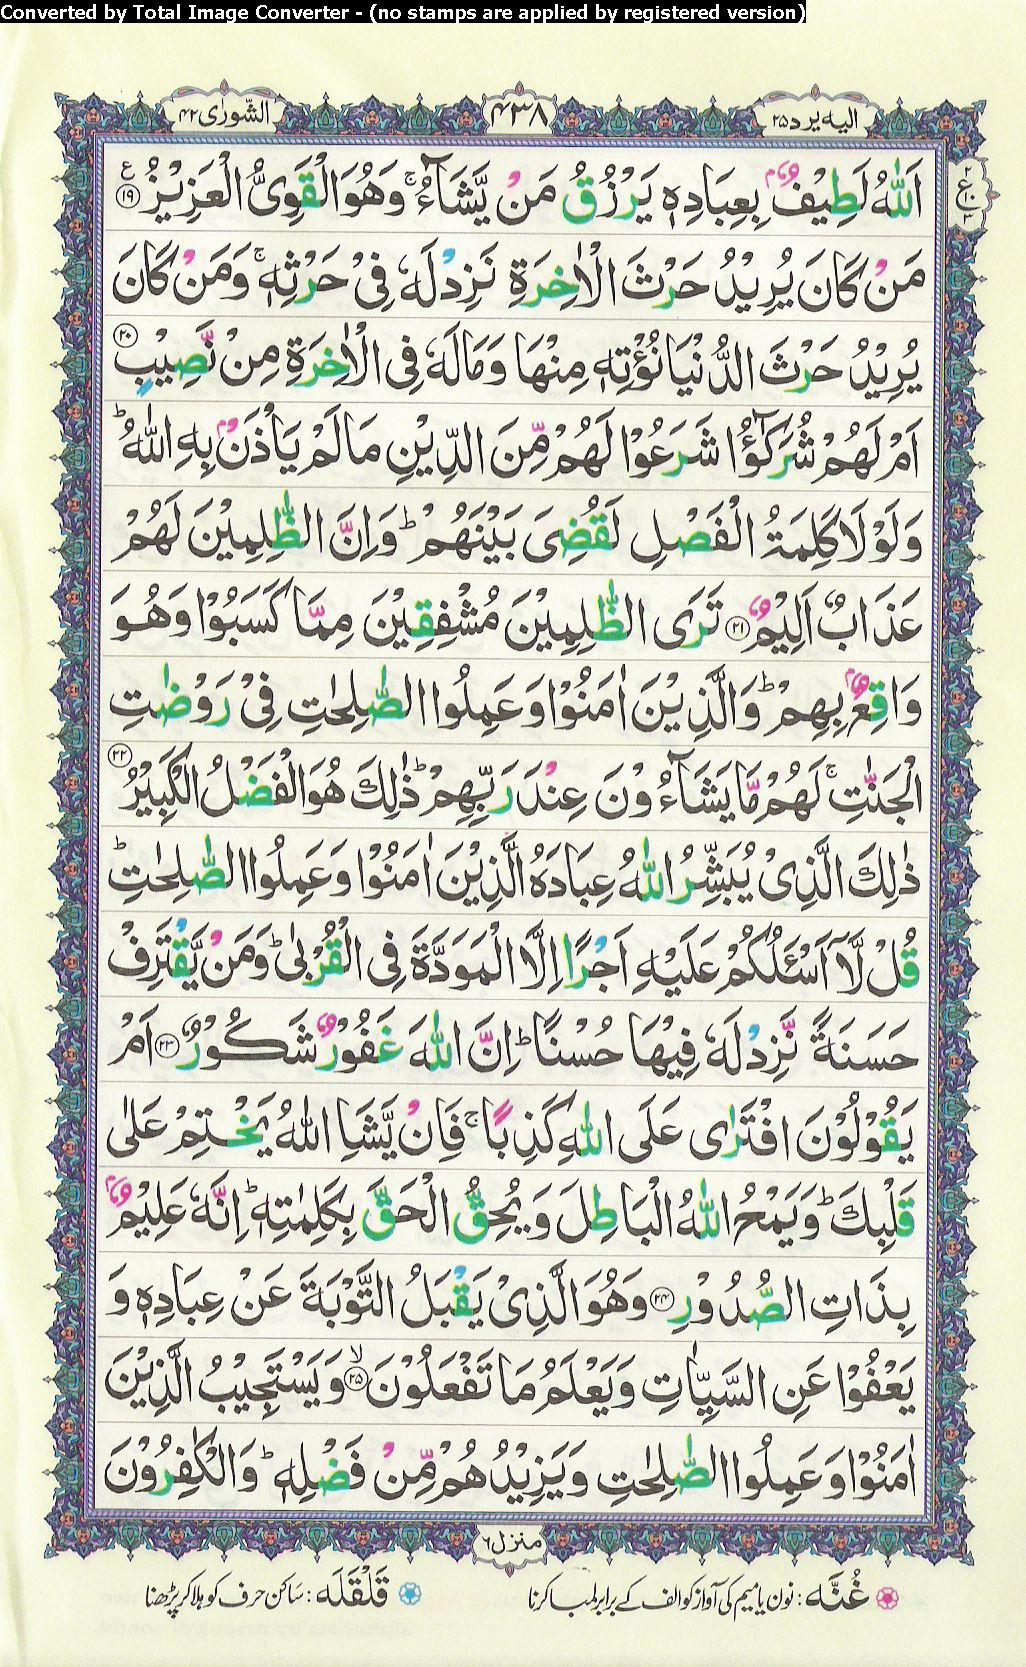 Converted by Total Image Converter - (no stamps are applied by registered version)
الیه یرد ۲۵
۴۳۸
الشّورٰی ۴۲
اَللّٰهُ لَطِیْفٌۢ بِعِبَادِهٖ یَرْزُقُ مَنْ یَّشَآءُ ۚ وَهُوَ الْقَوِیُّ الْعَزِیْزُ ۱۹
مَنْ كَانَ یُرِیْدُ حَرْثَ الْاٰخِرَةِ نَزِدْ لَهٗ فِیْ حَرْثِهٖ ۚ وَمَنْ كَانَ
یُرِیْدُ حَرْثَ الدُّنْیَا نُؤْتِهٖ مِنْهَا وَمَا لَهٗ فِی الْاٰخِرَةِ مِنْ نَّصِیْبٍ ۲۰
اَمْ لَهُمْ شُرَكٰٓؤُا شَرَعُوْا لَهُمْ مِّنَ الدِّیْنِ مَا لَمْ یَاْذَنْۢ بِهِ اللّٰهُ ؕ
وَلَوْلَا كَلِمَةُ الْفَصْلِ لَقُضِیَ بَیْنَهُمْ ؕ وَاِنَّ الظّٰلِمِیْنَ لَهُمْ
عَذَابٌ اَلِیْمٌ ۲۱ تَرَی الظّٰلِمِیْنَ مُشْفِقِیْنَ مِمَّا كَسَبُوْا وَهُوَ
وَاقِعٌۢ بِهِمْ ؕ وَالَّذِیْنَ اٰمَنُوْا وَعَمِلُوا الصّٰلِحٰتِ فِیْ رَوْضٰتِ
الْجَنّٰتِ ۚ لَهُمْ مَّا یَشَآءُوْنَ عِنْدَ رَبِّهِمْ ؕ ذٰلِكَ هُوَ الْفَضْلُ الْكَبِیْرُ ۲۲
ذٰلِكَ الَّذِیْ یُبَشِّرُ اللّٰهُ عِبَادَهُ الَّذِیْنَ اٰمَنُوْا وَعَمِلُوا الصّٰلِحٰتِ ؕ
قُلْ لَّاۤ اَسْـَٔلُكُمْ عَلَیْهِ اَجْرًا اِلَّا الْمَوَدَّةَ فِی الْقُرْبٰی ؕ وَمَنْ یَّقْتَرِفْ
حَسَنَةً نَّزِدْ لَهٗ فِیْهَا حُسْنًا ؕ اِنَّ اللّٰهَ غَفُوْرٌ شَكُوْرٌ ۲۳ اَمْ
یَقُوْلُوْنَ افْتَرٰی عَلَی اللّٰهِ كَذِبًا ۚ فَاِنْ یَّشَاِ اللّٰهُ یَخْتِمْ عَلٰی
قَلْبِكَ ؕ وَیَمْحُ اللّٰهُ الْبَاطِلَ وَیُحِقُّ الْحَقَّ بِكَلِمٰتِهٖ ؕ اِنَّهٗ عَلِیْمٌۢ
بِذَاتِ الصُّدُوْرِ ۲۴ وَهُوَ الَّذِیْ یَقْبَلُ التَّوْبَةَ عَنْ عِبَادِهٖ وَ
یَعْفُوْا عَنِ السَّیِّاٰتِ وَیَعْلَمُ مَا تَفْعَلُوْنَ ۲۵ۙ وَیَسْتَجِیْبُ الَّذِیْنَ
اٰمَنُوْا وَعَمِلُوا الصّٰلِحٰتِ وَیَزِیْدُهُمْ مِّنْ فَضْلِهٖ ؕ وَالْكٰفِرُوْنَ
منزل ۶
غُنَّه : نون یا میم کی آواز کو الف کے برابر لمبا کرنا
قَلْقَلَه : ساکن حرف کو ہلا کر پڑھنا